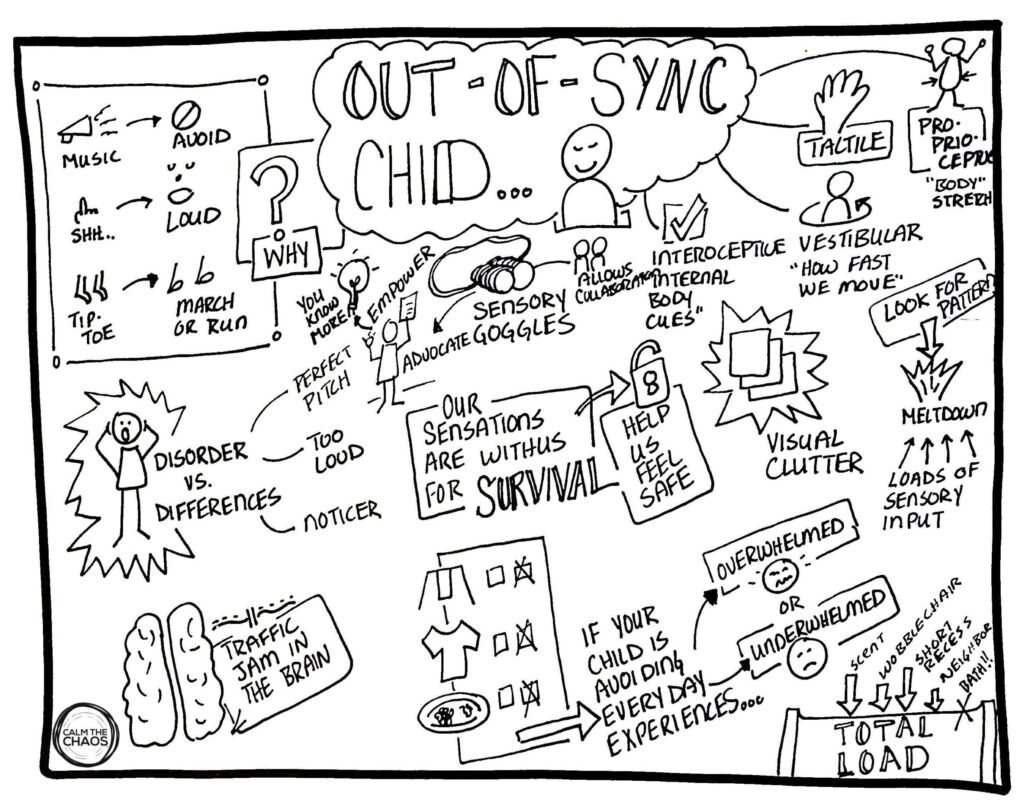 OUT-OF-SYNC
CHILD...
MUSIC
AVOID
SHH..
LOUD
TIP-
TOE
MARCH
OR RUN
?
WHY
TACTILE
PRO-
PRIO-
CEPTIVE
"BODY"
STRETCH
VESTIBULAR
"HOW FAST
WE MOVE"
INTEROCEPTIVE
"INTERNAL
BODY
CUES"
ALLOWS
COLLABORATION
SENSORY
GOGGLES
EMPOWER
ADVOCATE
YOU
KNOW
MORE!
LOOK FOR
PATTERN
MELTDOWN
LOADS OF
SENSORY
INPUT
VISUAL
CLUTTER
OUR
SENSATIONS
ARE WITH US
FOR SURVIVAL
8
HELP
US
FEEL
SAFE
DISORDER
VS.
DIFFERENCES
PERFECT
PITCH
TOO
LOUD
NOTICER
TRAFFIC
JAM IN
THE BRAIN
IF YOUR
CHILD IS
AVOIDING
EVERYDAY
EXPERIENCES...
OVERWHELMED
OR
UNDERWHELMED
SCENT
WOBBLE CHAIR
SHORT
RECESS
NEIGHBOR
BATH!!
TOTAL
LOAD
CALM THE
CHAOS